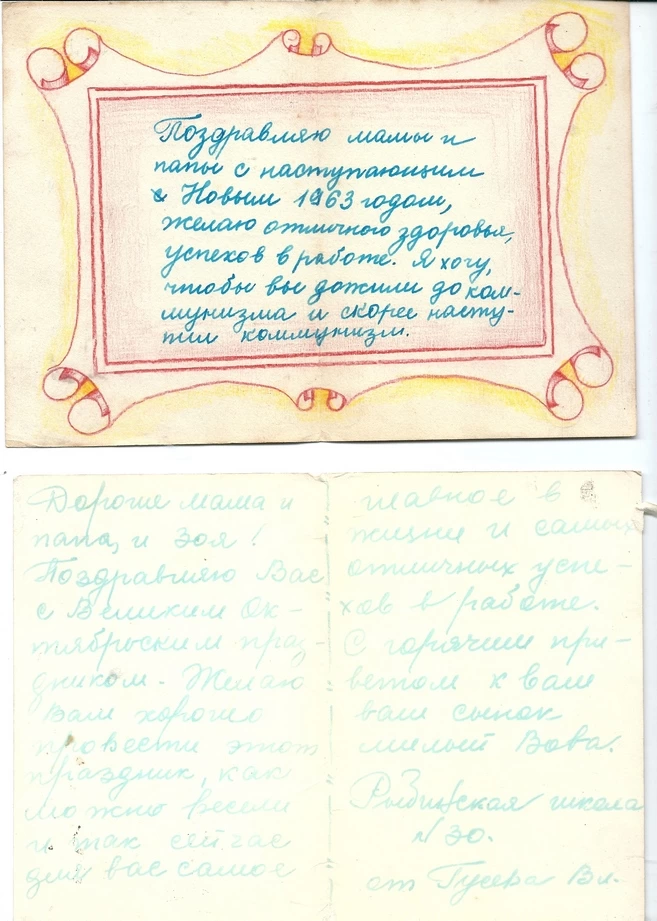 Поздравляю мамы и
папы с наступающим
с Новым 1963 годом,
желаю отличного здоровья,
успехов в работе. Я хочу,
чтобы вы дожили до ком-
мунизма и скорее насту-
пил коммунизм.
Дорогие мама и
папа, и Зоя!
Поздравляю Вас
с Великим Ок-
тябрьским праз-
дником. Желаю
Вам хорошо
провести этот
праздник, как
можно весели
и так сейчас
для вас самое
главное в
жизни и самых
отличных успе-
хов в работе.
С горячим при-
ветом к вам
ваш сынок
милый Вова.
Рыбинская школа
№30.
от Гусева Вл.